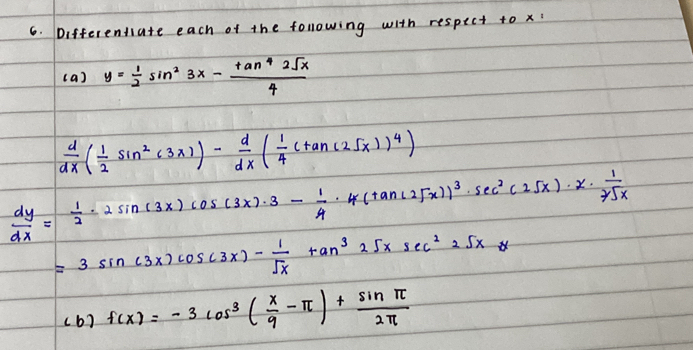 6. Differentiate each of the following with respect to x:
(a) y = 1/2 sin² 3x - tan⁴ 2√x / 4
d/dx (1/2 sin² (3x)) - d/dx (1/4 (tan (2√x))⁴)
dy/dx = 1/2 · 2 sin (3x) cos (3x) · 3 - 1/4 · 4 (tan (2√x))³ · sec² (2√x) · 2 · 1/2√x
= 3 sin (3x) cos (3x) - 1/√x tan³ 2√x sec² 2√x
(b) f(x) = -3 cos³ (x/9 - π) + sin π / 2π